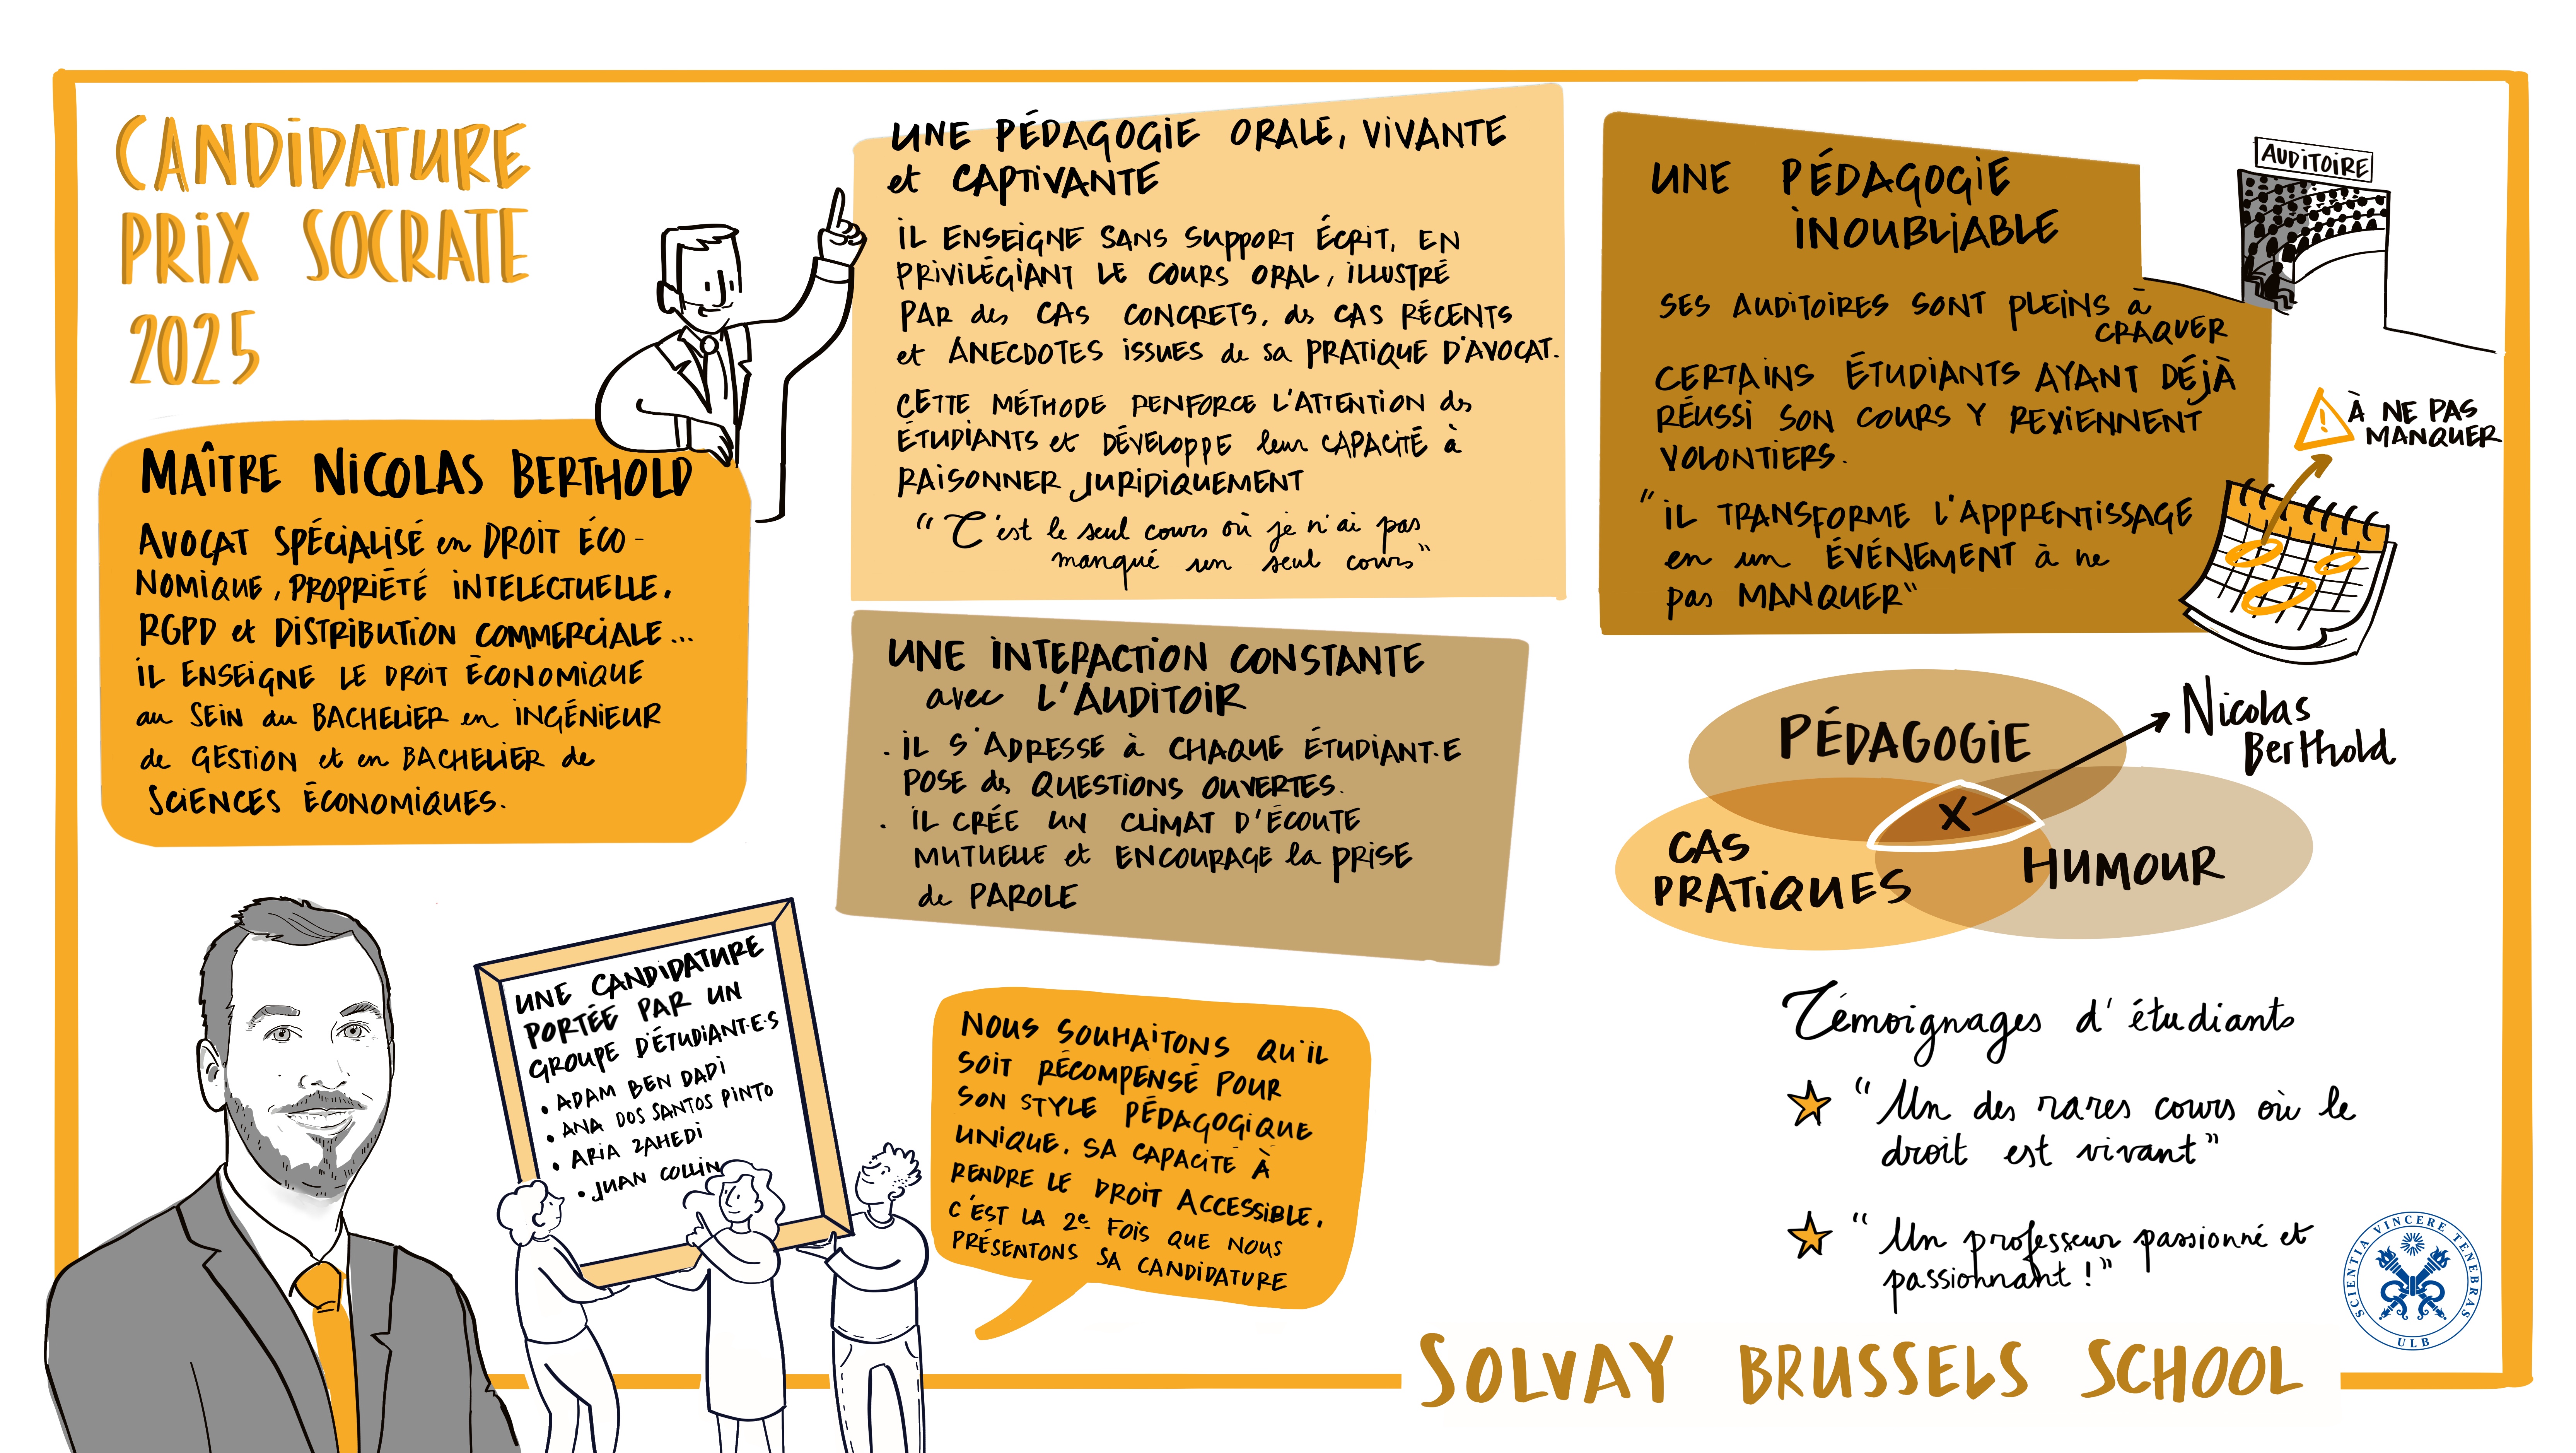 CANDIDATURE
PRIX SOCRATE
2025
MAÎTRE NICOLAS BERTHOLD
AVOCAT SPÉCIALISÉ en DROIT ÉCO-
NOMIQUE, PROPRIÉTÉ INTELECTUELLE,
RGPD et DISTRIBUTION COMMERCIALE...
IL ENSEIGNE LE DROIT ÉCONOMIQUE
au SEIN du BACHELIER en INGÉNIEUR
de GESTION et en BACHELIER de
SCIENCES ÉCONOMIQUES.
UNE PÉDAGOGIE ORALE, VIVANTE
et CAPTIVANTE
IL ENSEIGNE SANS SUPPORT ÉCRIT, EN
PRIVILÉGIANT LE COURS ORAL, ILLUSTRÉ
PAR des CAS CONCRETS, ds CAS RÉCENTS
et ANECDOTES ISSUES de sa PRATIQUE D'AVOCAT.
CETTE MÉTHODE RENFORCE L'ATTENTION ds
ÉTUDIANTS et DÉVELOPPE leur CAPACITÉ à
RAISONNER JURIDIQUEMENT
"C'est le seul cours où je n'ai pas
manqué un seul cours"
UNE INTERACTION CONSTANTE
avec L'AUDITOIR
. IL S'ADRESSE à CHAQUE ÉTUDIANT·E
POSE ds QUESTIONS OUVERTES.
. IL CRÉE UN CLIMAT D'ÉCOUTE
MUTUELLE et ENCOURAGE la PRISE
de PAROLE
UNE PÉDAGOGIE
INOUBLIABLE
SES AUDITOIRES SONT PLEINS à
CRAQUER
CERTAINS ÉTUDIANTS AYANT DÉJÀ
RÉUSSI SON COURS Y REVIENNENT
VOLONTIERS.
"IL TRANSFORME L'APPRENTISSAGE
en un ÉVÉNEMENT à ne
pas MANQUER"
AUDITOIRE
! À NE PAS
MANQUER
PÉDAGOGIE
CAS
PRATIQUES
HUMOUR
X
Nicolas
Berthold
UNE CANDIDATURE
PORTÉE PAR UN
GROUPE D'ÉTUDIANT·E·S
• ADAM BEN DADI
• ANA DOS SANTOS PINTO
• ARIA ZAHEDI
• JUAN COLLIN
NOUS SOUHAITONS QU'IL
SOIT RÉCOMPENSÉ POUR
SON STYLE PÉDAGOGIQUE
UNIQUE, SA CAPACITÉ À
RENDRE LE DROIT ACCESSIBLE,
C'EST LA 2e FOIS QUE NOUS
PRÉSENTONS SA CANDIDATURE
Témoignages d'étudiants
"Un des rares cours où le
droit est vivant"
"Un professeur passionné et
passionnant !"
SCIENTIA VINCERE TENEBRAS
ULB
SOLVAY BRUSSELS SCHOOL